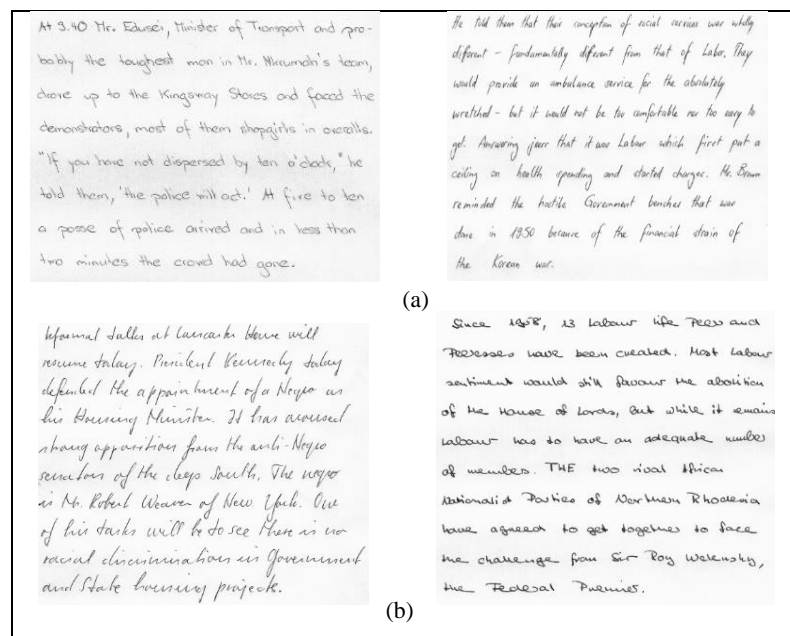 At 3.40 Mr. Edusei, Minister of Transport and pro-
bably the toughest man in Mr. Nkrumah's team,
drove up to the Kingsway Stores and faced the
demonstrators, most of them shopgirls in overalls.
"If you have not dispersed by ten o'clock," he
told them, 'the police will act.' At five to ten
a posse of police arrived and in less than
two minutes the crowd had gone.
He told them that their conception of social services was wholly
different - fundamentally different from that of Labor. They
would provide an ambulance service for the absolutely
wretched - but it would not be too comfortable nor too easy to
get. Answering jeers that it was Labour which first put a
ceiling on health spending and started charges. Mr. Brown
reminded the hostile Government benches that was
done in 1950 because of the financial strain of
the Korean war.
(a)
Informal talks at Lancaster House will
resume today. President Kennedy today
defended the appointment of a Negro as
his Housing Minister. It has aroused
strong opposition from the anti-Negro
senators of the deep South. The negro
is Mr. Robert Weaver of New York. One
of his tasks will be to see there is no
racial discrimination in Government
and State housing projects.
Since 1958, 13 Labour life Peers and
Peeresses have been created. Most Labour
sentiment would still favour the abolition
of the House of Lords, but while it remains
Labour has to have an adequate number
of members. THE two rival African
Nationalist Parties of Northern Rhodesia
have agreed to get together to face
the challenge from Sir Roy Welensky,
the Federal Premier.
(b)